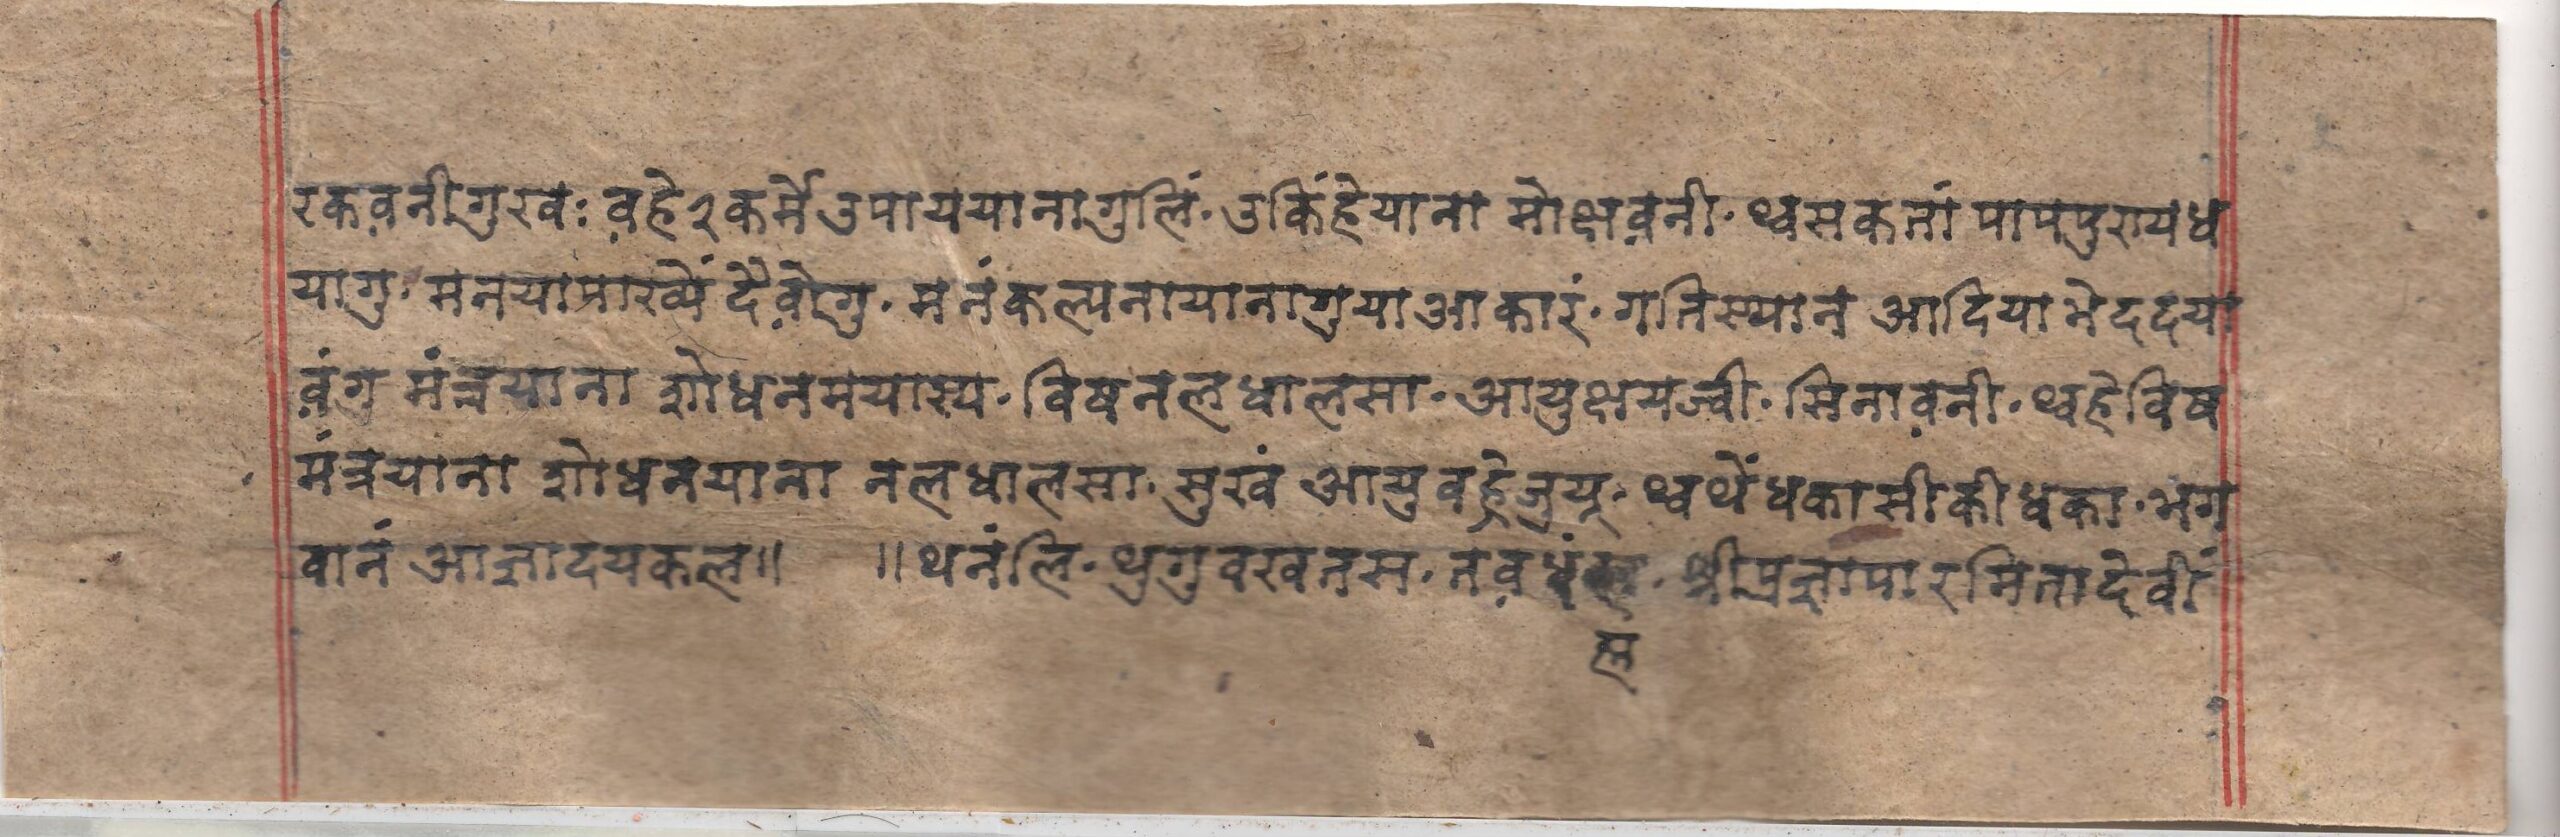 रकव़नीगुखः व़हे२कर्मे उपाययानागुलिं· उकिंहेयाना मोक्षव़नी· थ्वसकतां पापपुरायध
यागु· मनयाप्राख्यें दैव़ोगु· मनंकल्पनायानागुयाआकारं· गतिस्थानं आदियाभेददया
व़ंगु मंत्रयाना शोधनमयास्य· विषनलधालसा· आयुक्षयज्वी· सिनाव़नी· थ्वहेविष
मंत्रयाना शोधनयाना नलधालसा· सुखं आयुवह्रेजुयू· थ्वथेंधकासीकीधका· भग
वानं आज्ञादयकल॥ ॥थनंलि· थुगुवखतस· नव़धुंह्म· श्रीप्रज्ञापारमितादेवीं
ह्म